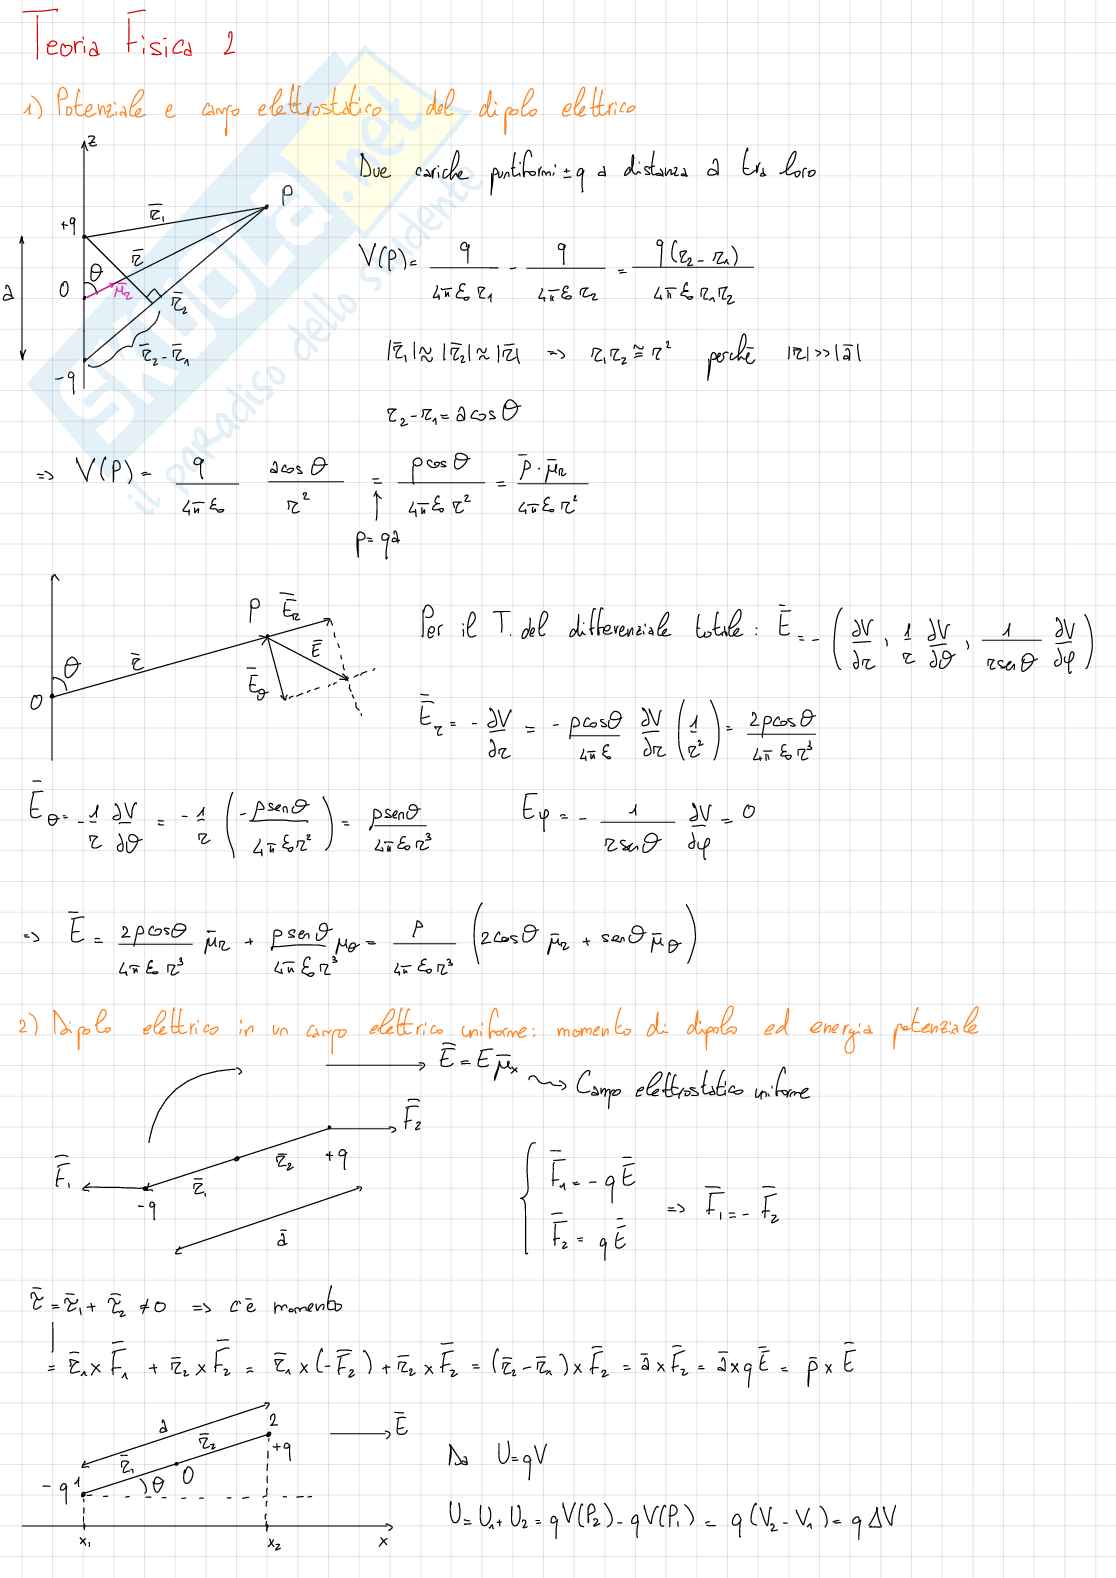 Teoria Fisica 2
1) Potenziale e campo elettrostatico del dipolo elettrico
Due cariche puntiformi ± q a distanza a tra loro
z
P
+q
r̄₁
r̄
θ
a
O
μ̄r
r̄₂
r̄₂ - r̄₁
-q
V(P) = q/(4π ε₀ r₁) - q/(4π ε₀ r₂) = q(r₂ - r₁)/(4π ε₀ r₁r₂)
|r̄₁| ≈ |r̄₂| ≈ |r̄| => r₁r₂ ≅ r² perchè |r| >> |ā|
r₂ - r₁ = a cos θ
=> V(P) = q/(4π ε₀) a cos θ/r² = p cos θ/(4π ε₀ r²) = p̄ · μ̄r/(4π ε₀ r²)
↑
p = qa
P Ēr
Ē
r̄
θ
Ēθ
O
Per il T. del differenziale totale: Ē = - (∂V/∂r, 1/r ∂V/∂θ, 1/(r sen θ) ∂V/∂φ)
Ēr = - ∂V/∂r = - p cos θ/(4π ε) ∂V/∂r (1/r²) = 2p cos θ/(4π ε₀ r³)
Ēθ = - 1/r ∂V/∂θ = - 1/r (- p sen θ/(4π ε₀ r²)) = p sen θ/(4π ε₀ r³) Eφ = - 1/(r sen θ) ∂V/∂φ = 0
=> Ē = 2p cos θ/(4π ε₀ r³) μ̄r + p sen θ/(4π ε₀ r³) μθ = p/(4π ε₀ r³) (2 cos θ μ̄r + sen θ μ̄θ)
2) Dipolo elettrico in un campo elettrico uniforme: momento di dipolo ed energia potenziale
Ē = E μ̄x
Campo elettrostatico uniforme
F̄₂
+q
r̄₂
F̄₁
r̄₁
-q
ā
F̄₁ = - q Ē
F̄₂ = q Ē
=> F̄₁ = - F̄₂
τ̄ = τ̄₁ + τ̄₂ ≠ 0 => c'è momento
= r̄₁ × F̄₁ + r̄₂ × F̄₂ = r̄₁ × (-F̄₂) + r̄₂ × F̄₂ = (r̄₂ - r̄₁) × F̄₂ = ā × F̄₂ = ā × q Ē = p̄ × Ē
a
2
Ē
r̄₂
+q
r̄₁
O
- q 1
θ
x₁
x₂
x
Da U = qV
U = U₁ + U₂ = q V(P₂) - q V(P₁) = q (V₂ - V₁) = q ΔV
SKUOLA.net
il paradiso dello studente